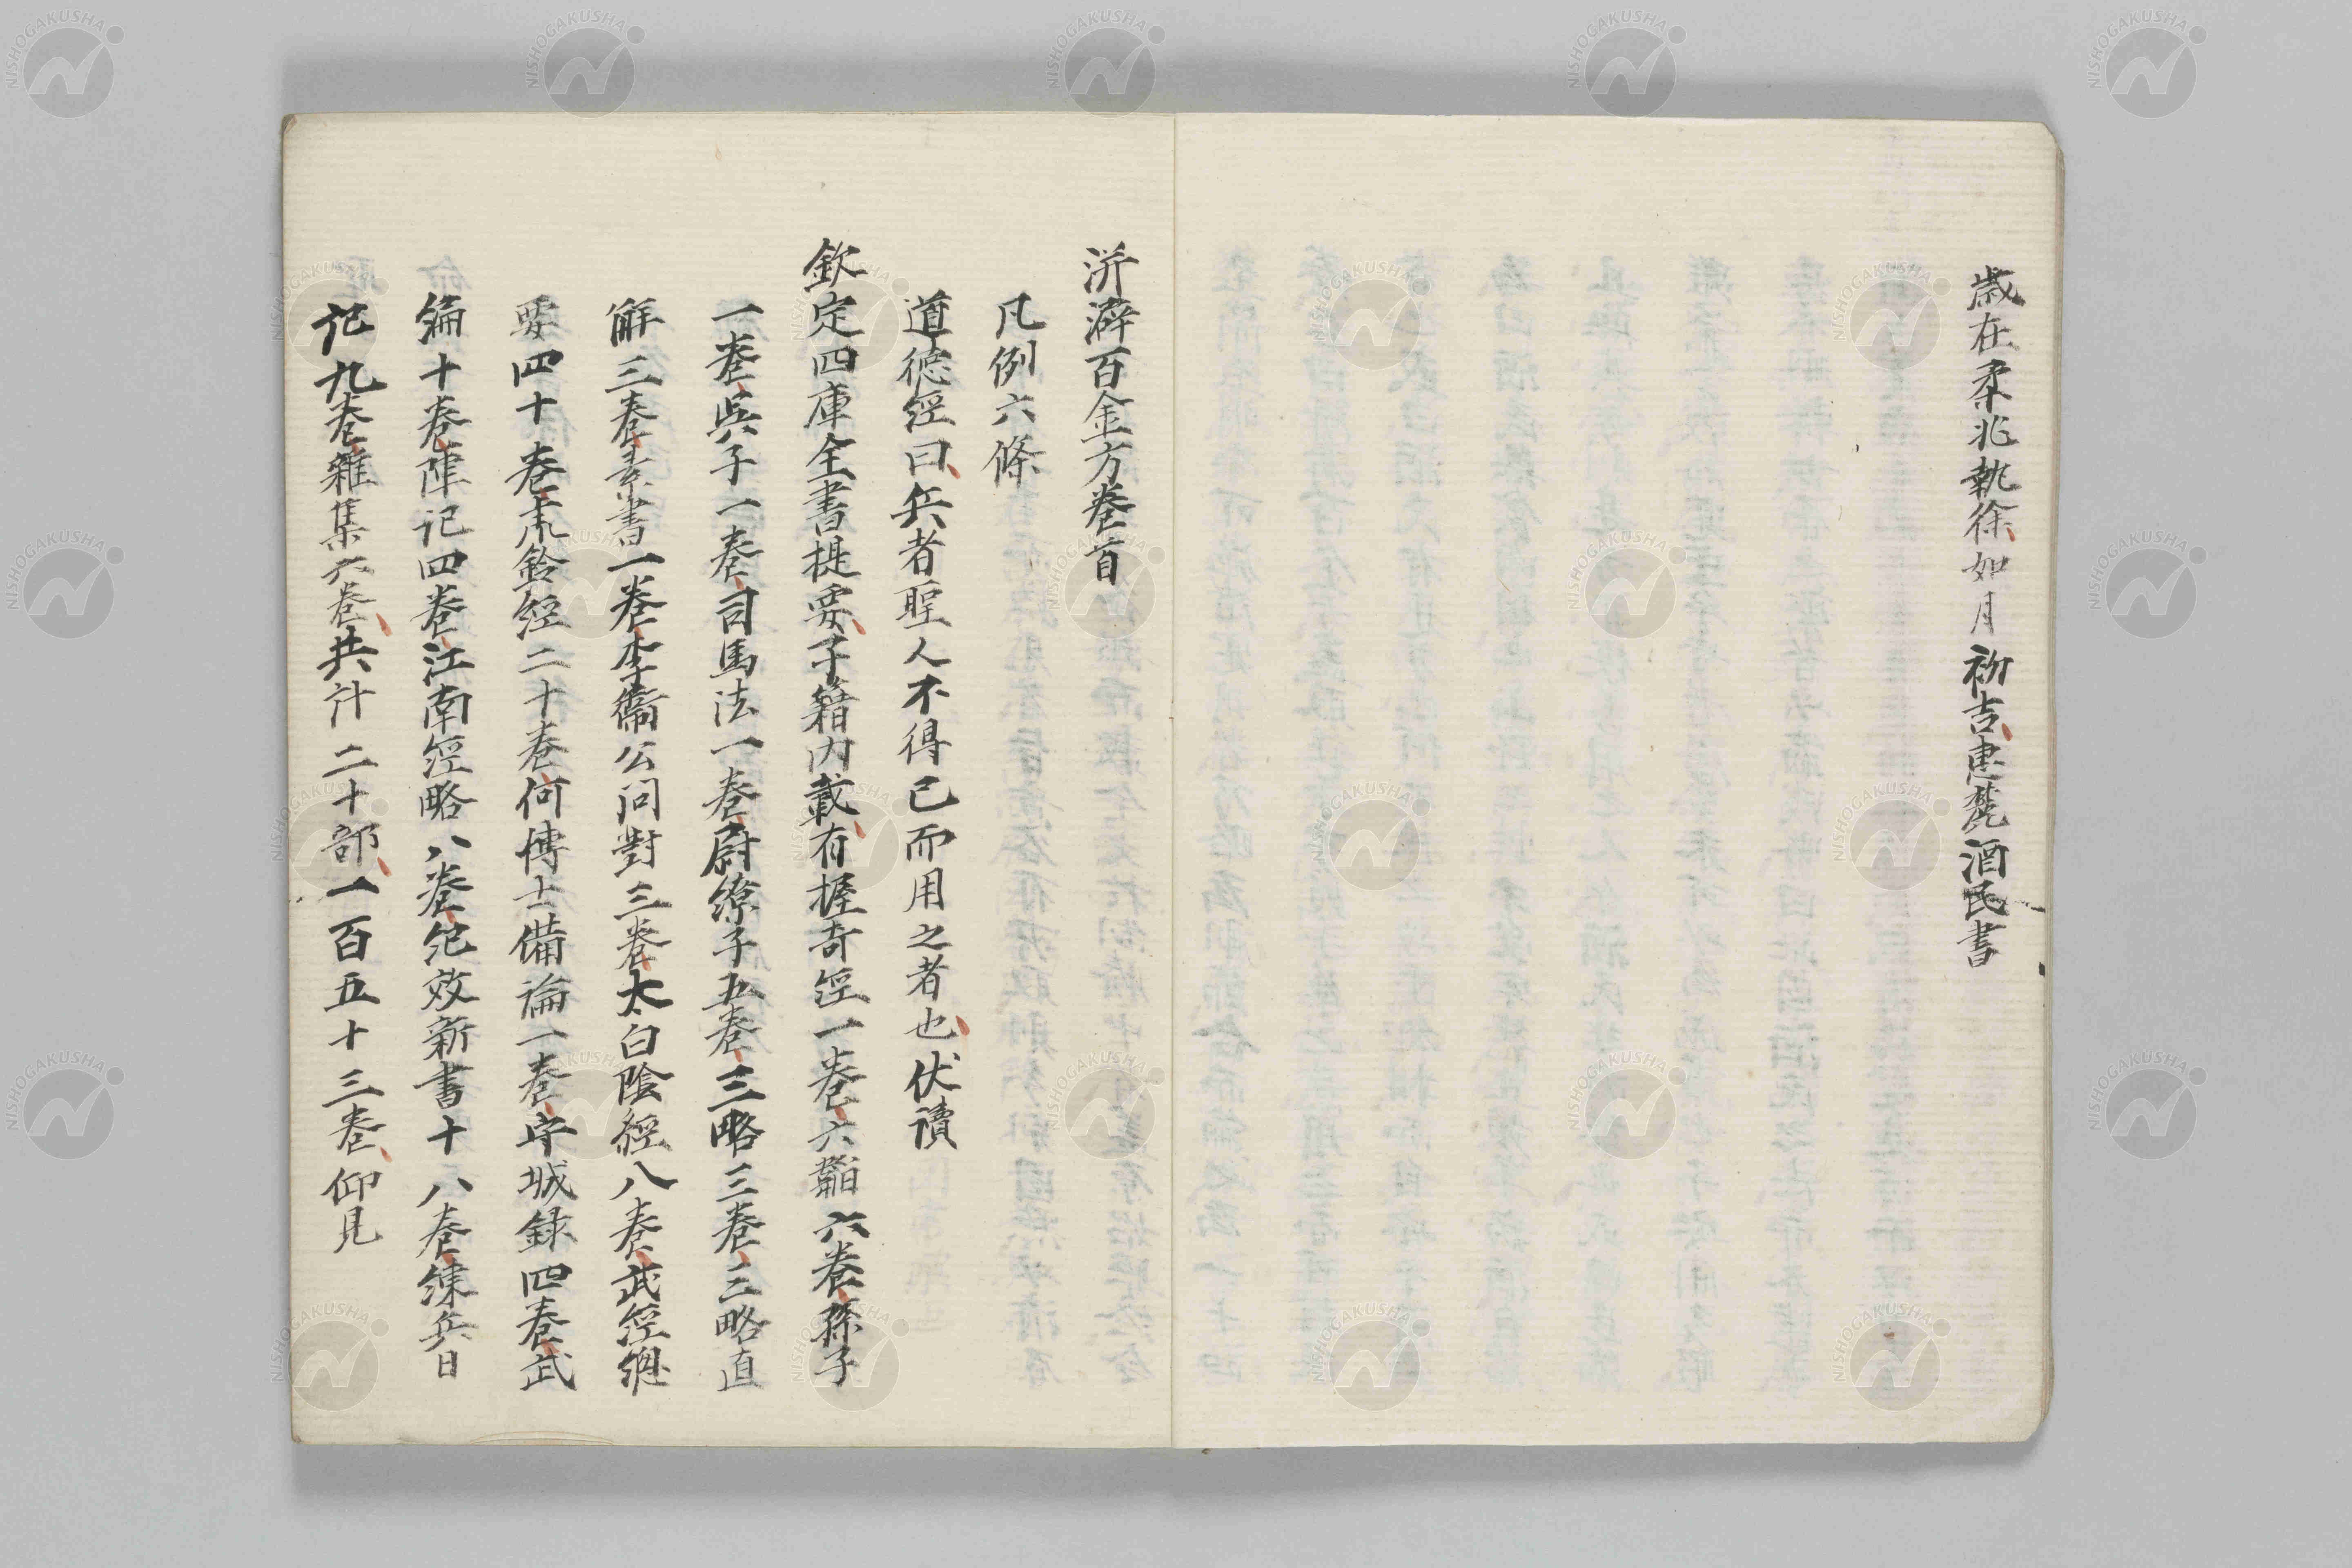 歲在柔兆執徐如月初吉惠麓酒民書
洴澼百金方卷首
凡例六條
道德經曰兵者聖人不得已而用之者也伏讀
欽定四庫全書提要子籍內載有握奇經一卷六韜六卷孫子
一卷吳子一卷司馬法一卷尉繚子五卷三略三卷三略直
解三卷素書一卷李衛公问對三卷太白陰經八卷武經總
要四十卷虎鈐經二十卷何博士備論一卷守城録四卷武
編十卷陣记四卷江南經略八卷紀效新書十八卷練兵日
记九卷雜集六卷共计二十部一百五十三卷仰見
NISHOGAKUSHA